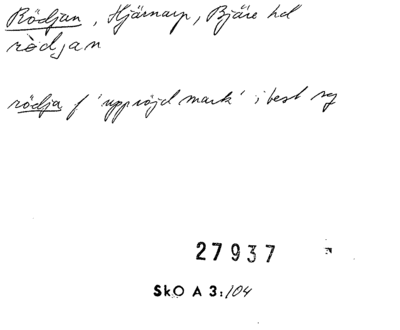 Rödjan, Hjärnarp, Bjäre hd
rödjan
rödja f 'uppröjd mark' i best sg
27937
SkO A 3:104